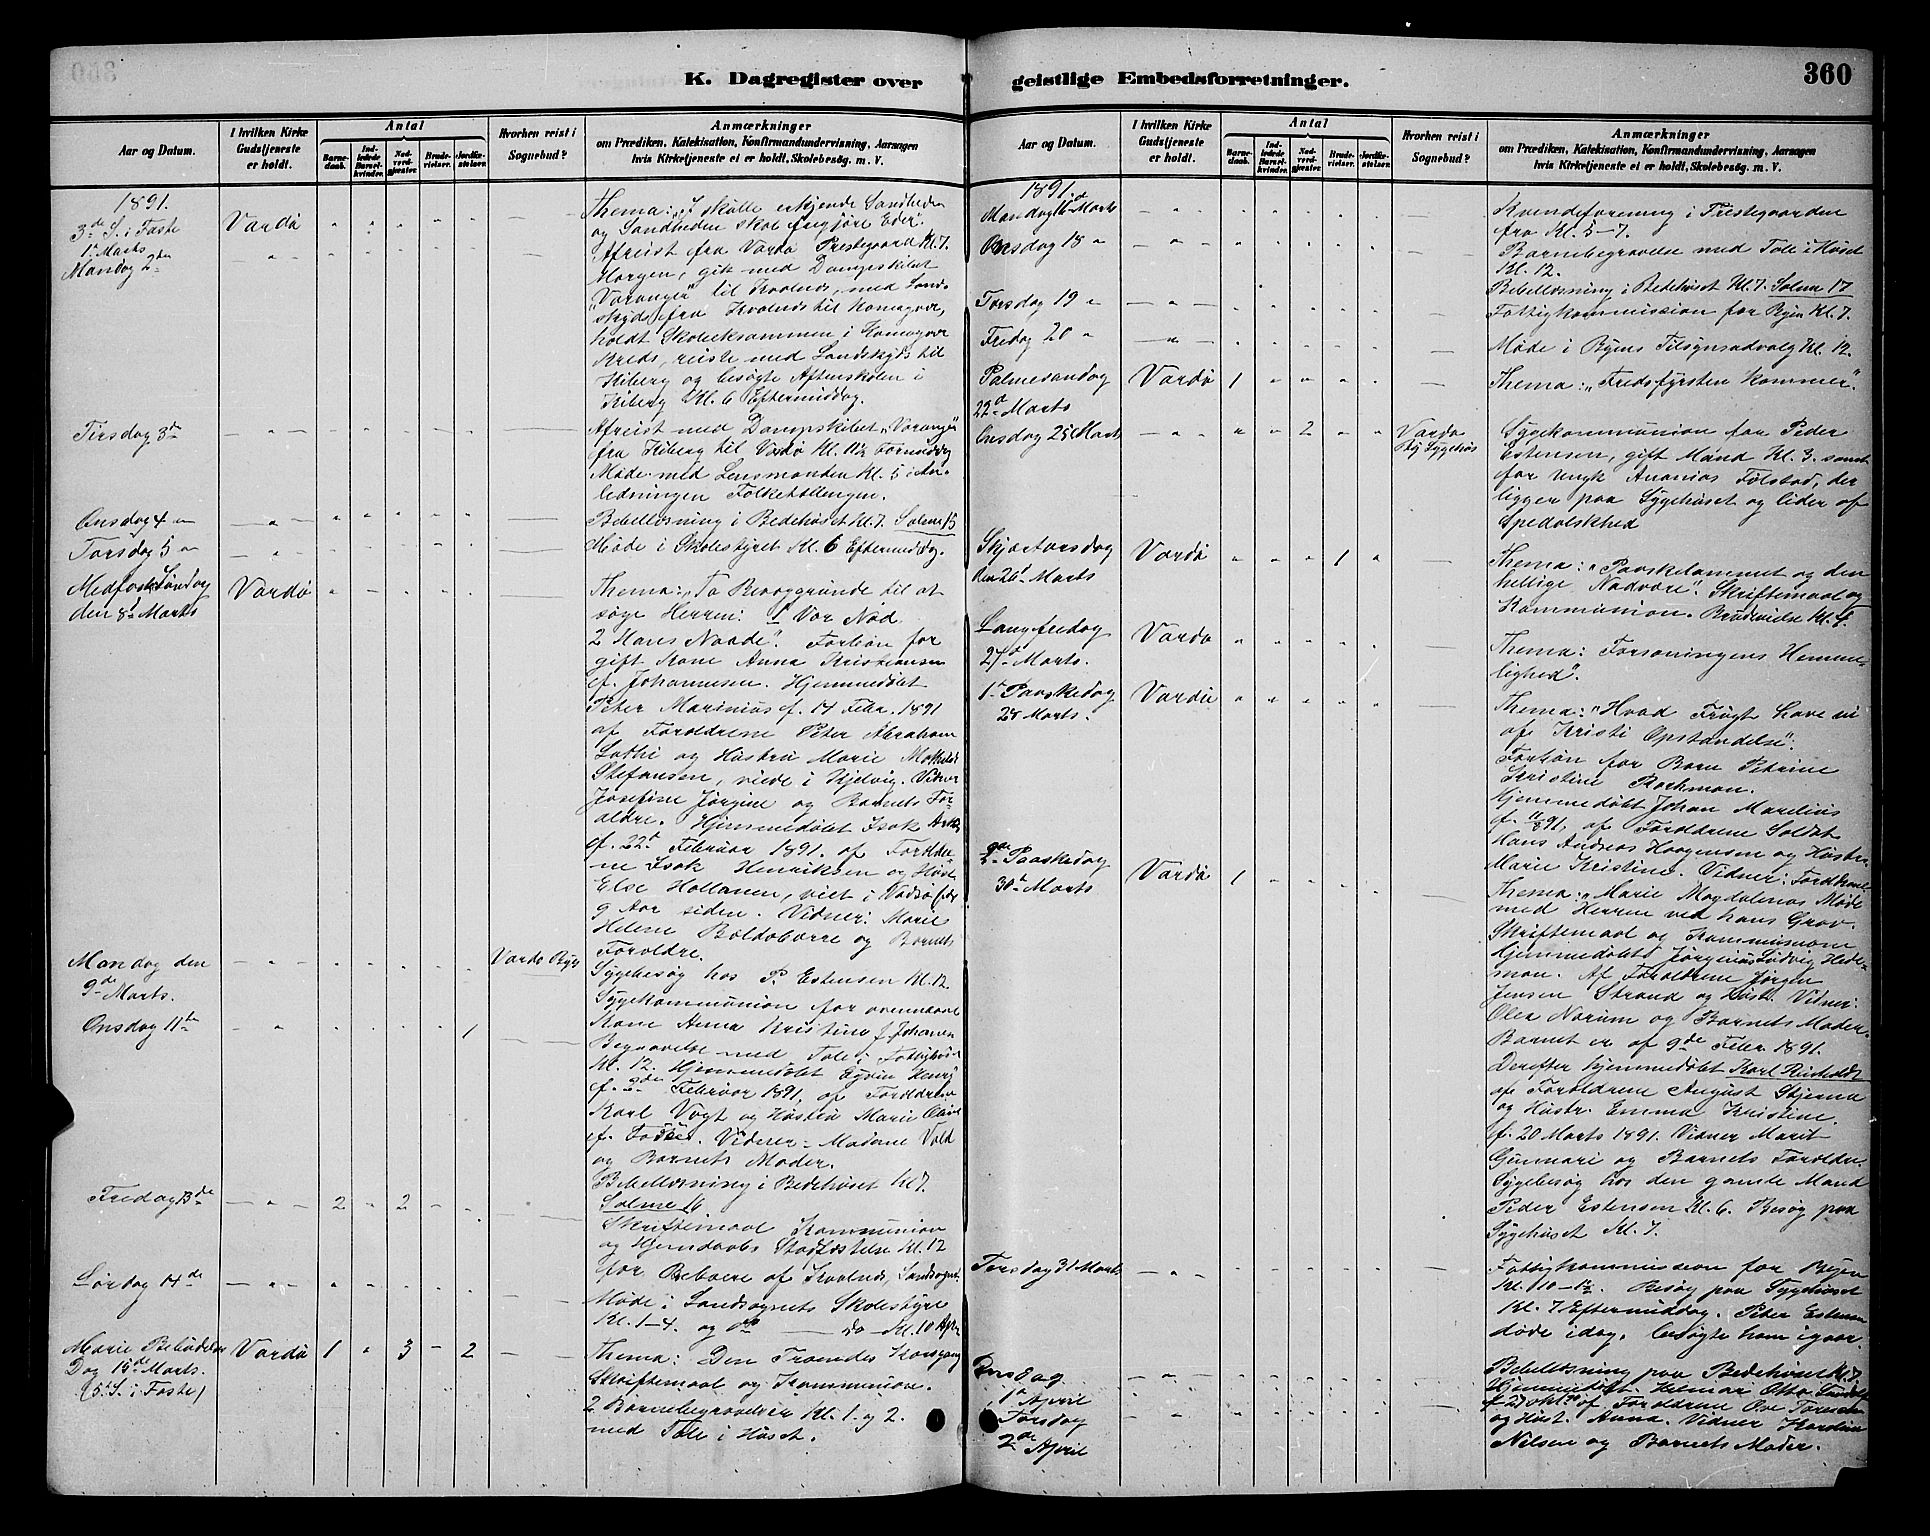 K. Dagregister over
Aar og Datum.
I hvilken Kirke Gudstjeneste er holdt.
Antal
Barne-daab.
Ind-ledede Barsel-kvinder.
Nad-verd-gjester.
Brude-vielser.
Jordfæ-stelser.
Hvorhen reist i Sognebud?
Anmærkninger
om Prædiken, Katekisation, Konfirmandundervisning, Aarsagen
hvis Kirketjeneste ei er holdt, Skolebesøg, m. V.
1891.
3die S. i Faste
1ste Marts
Vardø
Thema: "I skulle erkjende Sandheden
og Sandheden skal frigjøre Eder".
Mandag 2den
Afreist fra Vardø Prestegaard Kl. 7.
Morgen, gik med Dampskibet
"Varanger" til Kvalnes, med Land-
skyds fra Kvalnes til Komagvær,
holdt Skoleeksammen i Komagvær
Kreds, reiste med Landskyds til
Kiberg og besøgte Aftenskolen i
Kiberg Kl. 6 Eftermiddag.
Tirsdag 3de
Afreist med Dampskibet "Varanger"
fra Kiberg til Vardø Kl. 11½ Formiddag
Møde med Lensmanden Kl. 5 i An-
ledningen Folketællingen.
Onsdag 4
Bibellæsning i Bedehuset Kl. 7. Salme 15
Torsdag 5
Møde i Skolestyret Kl. 6 Eftermiddag.
Midfaste Søndag
den 8de Marts
Vardø
Thema: "To Bevæggrunde til at
søge Herren: 1 Vor Nød.
2 Hans Naade". Forbøn for
gift Kone Anna Kristiansen
f. Johannesen. Hjemmedøbt
Peter Marinius f. 14 Febr. 1891
af Forældrene Peter Abraham
og Hustru Marie
Stefansen, viede i Kjelvig. Vidner
Josefine Jørgine og Barnets For-
ældre. Hjemmedøbt Isak
f. 22de Februar 1891. af Forældre-
ne Isak Henriksen og Hust.
Else Hollanen, viet i Vadsø for
9 Aar siden. Vidner: Marie
Helene og Barnets
Forældre.
Mandag den
9de Marts.
Vardø By
Sygebesøg hos P. Estensen Kl. 12.
Sygekommunion for ovennævnt
Kone Anna Kristine f. Johansen
Onsdag 11te
1
Begravelse med Tale i Fattighuset
Kl. 12. Hjemmedøbt Henry
f. Februar 1891, af Forældrene
Karl Vogt og Hustru Marie
f. Vidner: Madame Vold
og Barnets Moder.
Bibellæsning i Bedehuset Kl. 7.
Salme 16
Fredag 13de
2 2
Skriftemaal Kommunion
og Hjemdaabs Stadfæstelse Kl. 12
for Beboere af Kvalnes, Landsognet.
Lørdag 14de
Møde i Landsognets Skolestyre
Kl. 1-4. og do — do - Kl. 10
Marie Bebudelses
Dag 15de Marts.
(5te S. i Faste)
Vardø
1 3 2
Thema: Den Troendes Korsgang
Skriftemaal og Kommunion.
2 Barnebegravelser Kl. 1 og 2.
med Tale i Huset.
geistlige Embedsforretninger.
360
Aar og Datum.
I hvilken Kirke Gudstjeneste er holdt.
Antal
Barne-daab.
Ind-ledede Barsel-kvinder.
Nad-verd-gjester.
Brude-vielser.
Jordfæ-stelser.
Hvorhen reist i Sognebud?
Anmærkninger
om Prædiken, Katekisation, Konfirmandundervisning, Aarsagen
hvis Kirketjeneste ei er holdt, Skolebesøg, m. V.
1891.
Mandag 16de Marts
Kvindeforening i Prestegaarden
fra Kl. 5-7.
Onsdag 18 "
Barnebegravelse med Tale i Huset
Kl. 12.
Bibellæsning i Bedehuset Kl. 7. Salme 17
Torsdag 19 "
Fattigkommission for Byen Kl. 7.
Fredag 20 "
Møde i Byens Tilsynsudvalg Kl. 12.
Palmesøndag
22de Marts
Vardø
1
Thema: "Fredsfyrsten kommer".
Onsdag 25 Marts
2
Vardø
By Sygehus
Sygekommunion for Peder
Estensen, gift Mand Kl. 3. samt
for Ungk Ananias Følstad, der
ligger paa Sygehuset og lider af
Spedalskhed
Skjærtorsdag
den 26de Marts
Vardø
1
Thema: "Paaskelammet og den
hellige Nadvere". Skriftemaal og
Kommunion. Brudevielse Kl.
Langfredag
27de Marts.
Vardø
Thema: Forsoningens Hemme-
lighed".
1ste Paaskedag
Marts.
Vardø
Thema: "Hvad Frugt have vi
af Kristi Opstandelse".
Forbøn for Barn Petrine
Kristine
Hjemmedøbt Johan Marelius
af Forældrene Soldat
Hans Andreas Haagensen og Hustru
Marie Kristine. Vidner: Forældrene
2den Paaskedag
30te Marts
Vardø
1
Thema: "Marie Magdalenas Møde
med Herren ved hans Grav.
Skriftemaal og Kommunion
Hjemmedøbt Jørgenius Ludvig
Af Forældrene Jørgen
Jensen Strand og Hust. Vidner:
Olea Norum og Barnets Moder.
Barnet er af 9de Febr. 1891.
Derefter hjemmedøbt Karl Reinholdt
af Forældrene August Stjerna
og Hustr. Emma Kristine.
f. 20 Marts 1891. Vidner Marit
Gunnari og Barnets Forældre.
Sygebesøg hos den gamle Mand
Peder Estensen Kl. 6. Besøg paa
Sygehuset Kl. 7.
Tirsdag 31 Marts
Fattigkommission for Byen
Kl. 10-12. Besøg paa Sygehuset
Kl. 7 Eftermiddag. Peter Estensen
døde idag, besøgte ham igaar.
Onsdag
1ste April
Bibellæsning paa Bedehuset Kl. 7
Torsdag
2den April
Hjemmedøbt Helmar Otto
af Forældrene Ove
og Hust. Anna. Vidner
Nilsen og Barnets Moder.